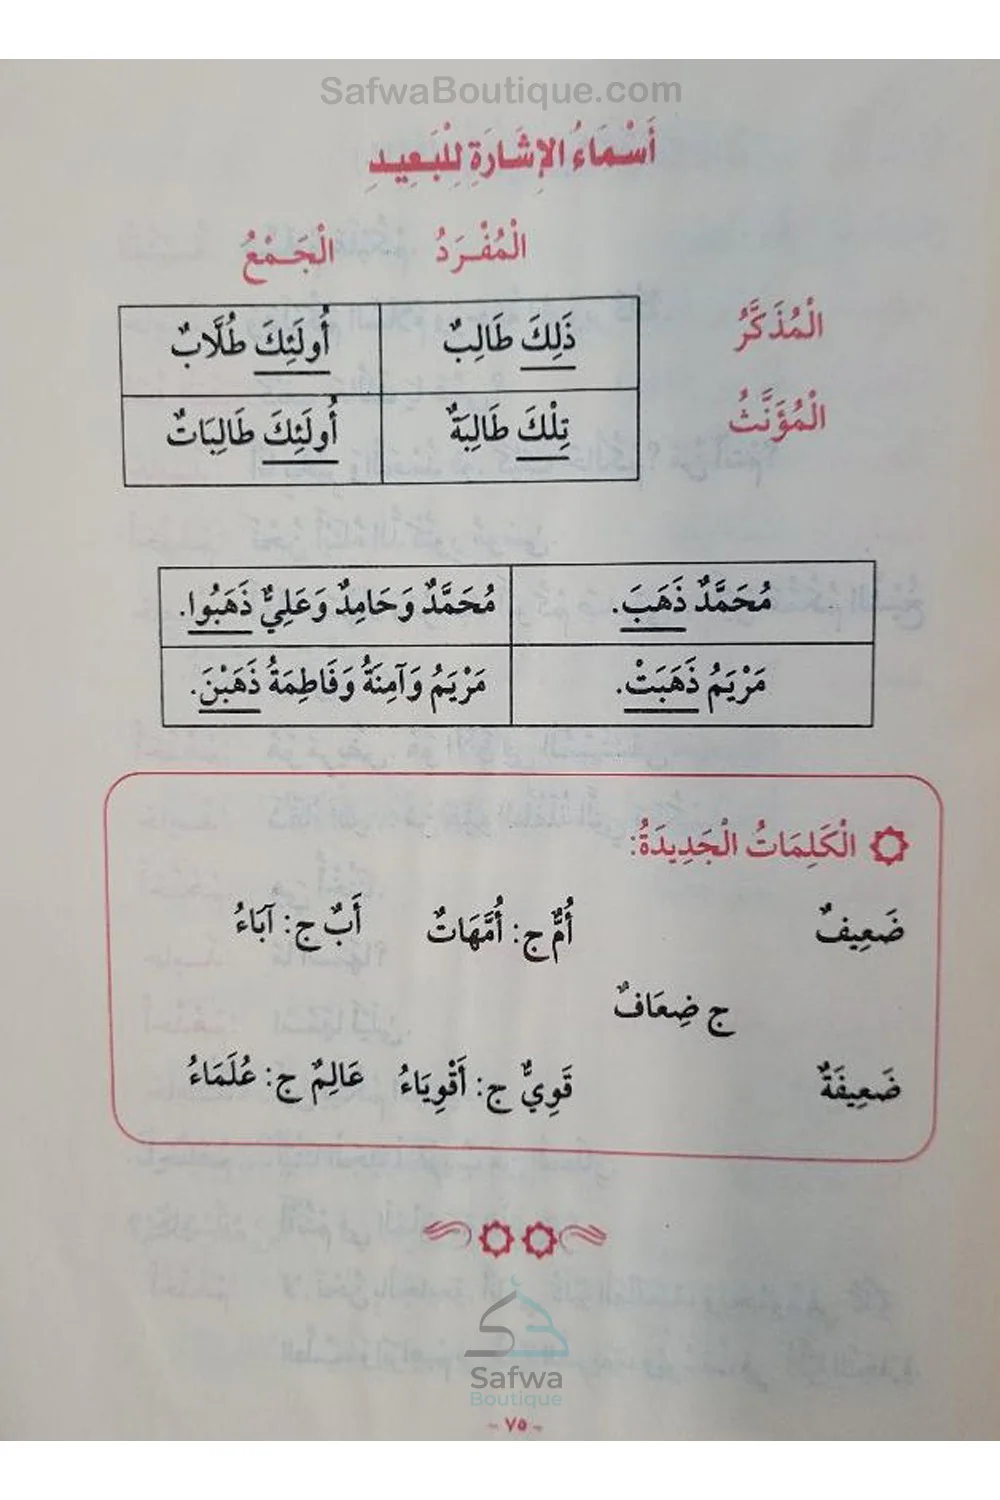 SafwaBoutique.com
أَسْمَاءُ الإِشَارَةِ لِلْبَعِيدِ
الْمُفْرَدُ الْجَمْعُ
الْمُذَكَّرُ ذَلِكَ طَالِبٌ أُولَئِكَ طُلَّابٌ
الْمُؤَنَّثُ تِلْكَ طَالِبَةٌ أُولَئِكَ طَالِبَاتٌ
مُحَمَّدٌ ذَهَبَ. مُحَمَّدٌ وَحَامِدٌ وَعَلِيٌّ ذَهَبُوا.
مَرْيَمُ ذَهَبَتْ. مَرْيَمُ وَآمِنَةُ وَفَاطِمَةُ ذَهَبْنَ.
الْكَلِمَاتُ الْجَدِيدَةُ:
ضَعِيفٌ أُمٌّ ج: أُمَّهَاتٌ أَبٌ ج: آبَاءُ
ج ضِعَافٌ
ضَعِيفَةٌ قَوِيٌّ ج: أَقْوِيَاءُ عَالِمٌ ج: عُلَمَاءُ
Safwa
Boutique
- ٧٥ -